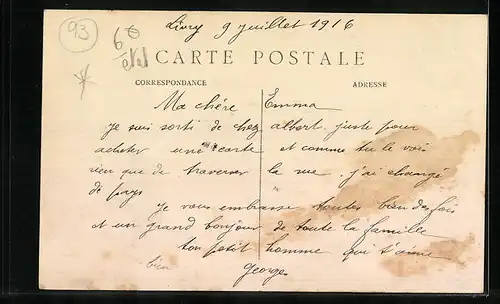 93
6
Livry 9 juillet 1916
CARTE POSTALE
CORRESPONDANCE
ADRESSE
Ma chère Emma
je suis sorti de chez albert juste pour
acheter une carte et comme tu le vois
rien que de traverser la rue. j'ai changé
de pays
Je vous embrasse toutes bien des fois
et un grand bonjour de toute la famille
ton petit homme qui t'aime
bien
Georges